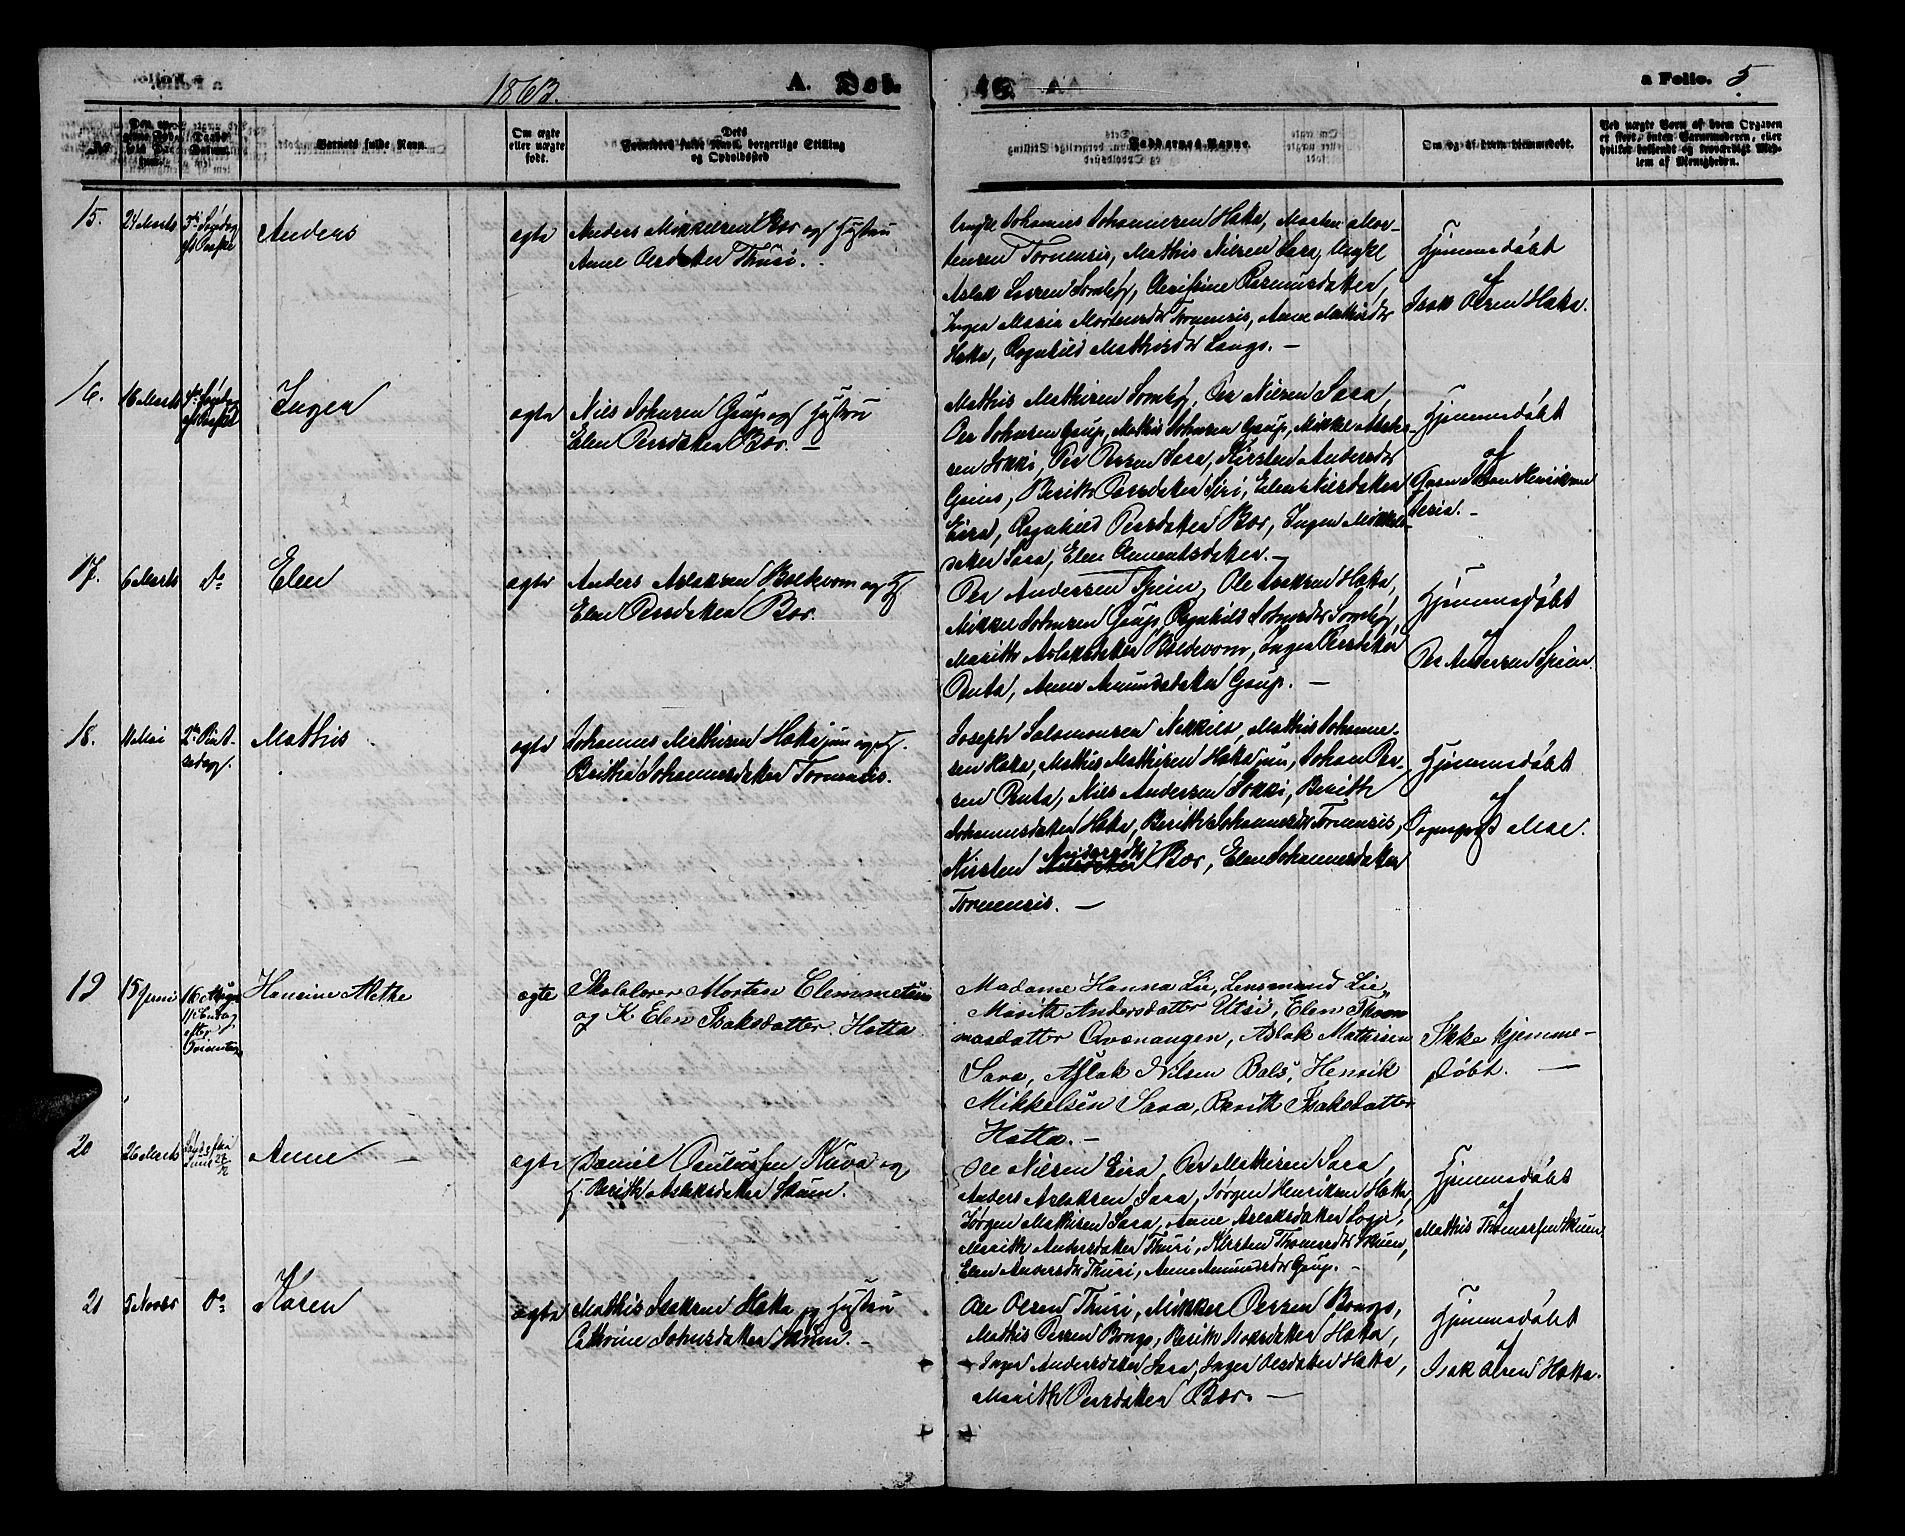 1863. A. a Folio. 5
No
Barnets fulde Navn.
Om ægte eller uægte født.
Dets Forældres fulde Navn, borgerlige Stilling og Opholdsted
Faddernes Navne.
Om og af hvem hjemmedøbt.
Ved uægte Born af hvem Opgaven er skeet, enten Barnemoderen, eller hvilket bosiddende og troværdigt Medlem af Menigheden.
15. 24 Marts Anders ægte Anders Mikkelsen Bær og Hustru
Anne Olsdatter Thuri.
Johannes Johannesen Hætta, Morten Mor-
tensen Tornensis, Mathis Nilsen Sara,
Aslak Larsen Somby, Rasmusdatter,
Inger Maria Mortensdr Tornensis, Anne Mathisdr
Hætta, Ragnhild Mathisdr Lango. —
Hjemmedøbt
af
Isak Olsen Hætta.
16. 16 Marts Inger ægte Nils Johnsen Gaup og Hustru
Elen Persdatter Bær. —
Mathis Mathisen Somby, Per Nilsen Sara,
Per Johnsen Gaup, Mathis Johnsen Gaup, Mikkel Aslak-
sen Sokki, Per Persen Sara, Kirsten Andersdr
Gaino, Berith Persdatter Siri, Elen Nilsdatter
Eira, Ragnhild Persdatter Bær, Inger Mikkels-
datter Sara, Elen Clemetsdatter. —
Hjemmedøbt
af
17. 6 Marts Do Elen ægte Anders Aslaksen Boldevom og H.
Elen Persdatter Bær.
Per Andersen Spein, Ole Isaksen Hætta,
Mikkel Johnsen Gaup, Ragnhild Johnsdr Somby,
Marith Aslaksdatter Boldevom, Inger Persdatter
Penta, Anne Amundsdatter Gaup. —
Hjemmedøbt
af
Per Andersen Spein.
18. 11 Mai 2den Pint-
sedag. Mathis ægte Johannes Mathisen Hætta jun og H.
Beritha Johannesdatter Tornensis.
Joseph Salamonsen Nikkild, Mathis Johanne-
sen Hætta, Mathis Mathisen Hætta jun, Johan Per-
sen Penta, Nils Andersen Sokki, Berith
Johannesdatter Hætta, Berith Johannesdr Tornensis,
Kirsten Andersdtr Bær, Elen Johannesdatter
Tornensis. —
Hjemmedøbt
af
Sognepræst Moe.
19 15 Juni 16 August
11 Søndag
efter
Trinitatis Hansine Methe ægte Skolelærer Morten Clemmetsen
og K. Elen Isaksdatter Hætta
Madame Hanna Lie, Lensmand Lie,
Marith Andersdatter Utsi, Elen Thom-
masdatter Qvænangen, Aslak Mathisen
Sara, Aslak Nilsen Bals, Henrik
Mikkelsen Sara, Berith Isaksdatter
Hætta. —
Ikke hjemme-
døbt. —
20 26 Marts Anne — ægte Daniel Paulussen Kuva og
H. Berith Aslaksdatter Skum.
Ole Nilsen Eira, Per Mathisen Sara,
Anders Aslaksen Sara, Jørgen Henriksen Hætta,
Jørgen Mathisen Sara, Anne Aslaksdatter Logje,
Marith Andersdatter Thuri, Kirsten Thomasdr Skum,
Elen Andersdr Thuri, Anne Amundsdr Gaup. —
Hjemmedøbt
af
Mathis Thomassen Skum
21 5 Novbr Do Karen ægte Mathis Isaksen Hætta og Hustru
Cathrine Johnsdatter Skum. —
Ole Olsen Thuri, Mikkel Persen Bongo,
Mathis Persen Bongo, Berith Isaksdatter Hætta,
Inger Andersdatter Sara, Inger Olsdatter Hætta,
Marith Persdatter Bær. —
Hjemmedøbt
af
Isak Olsen Hætta.